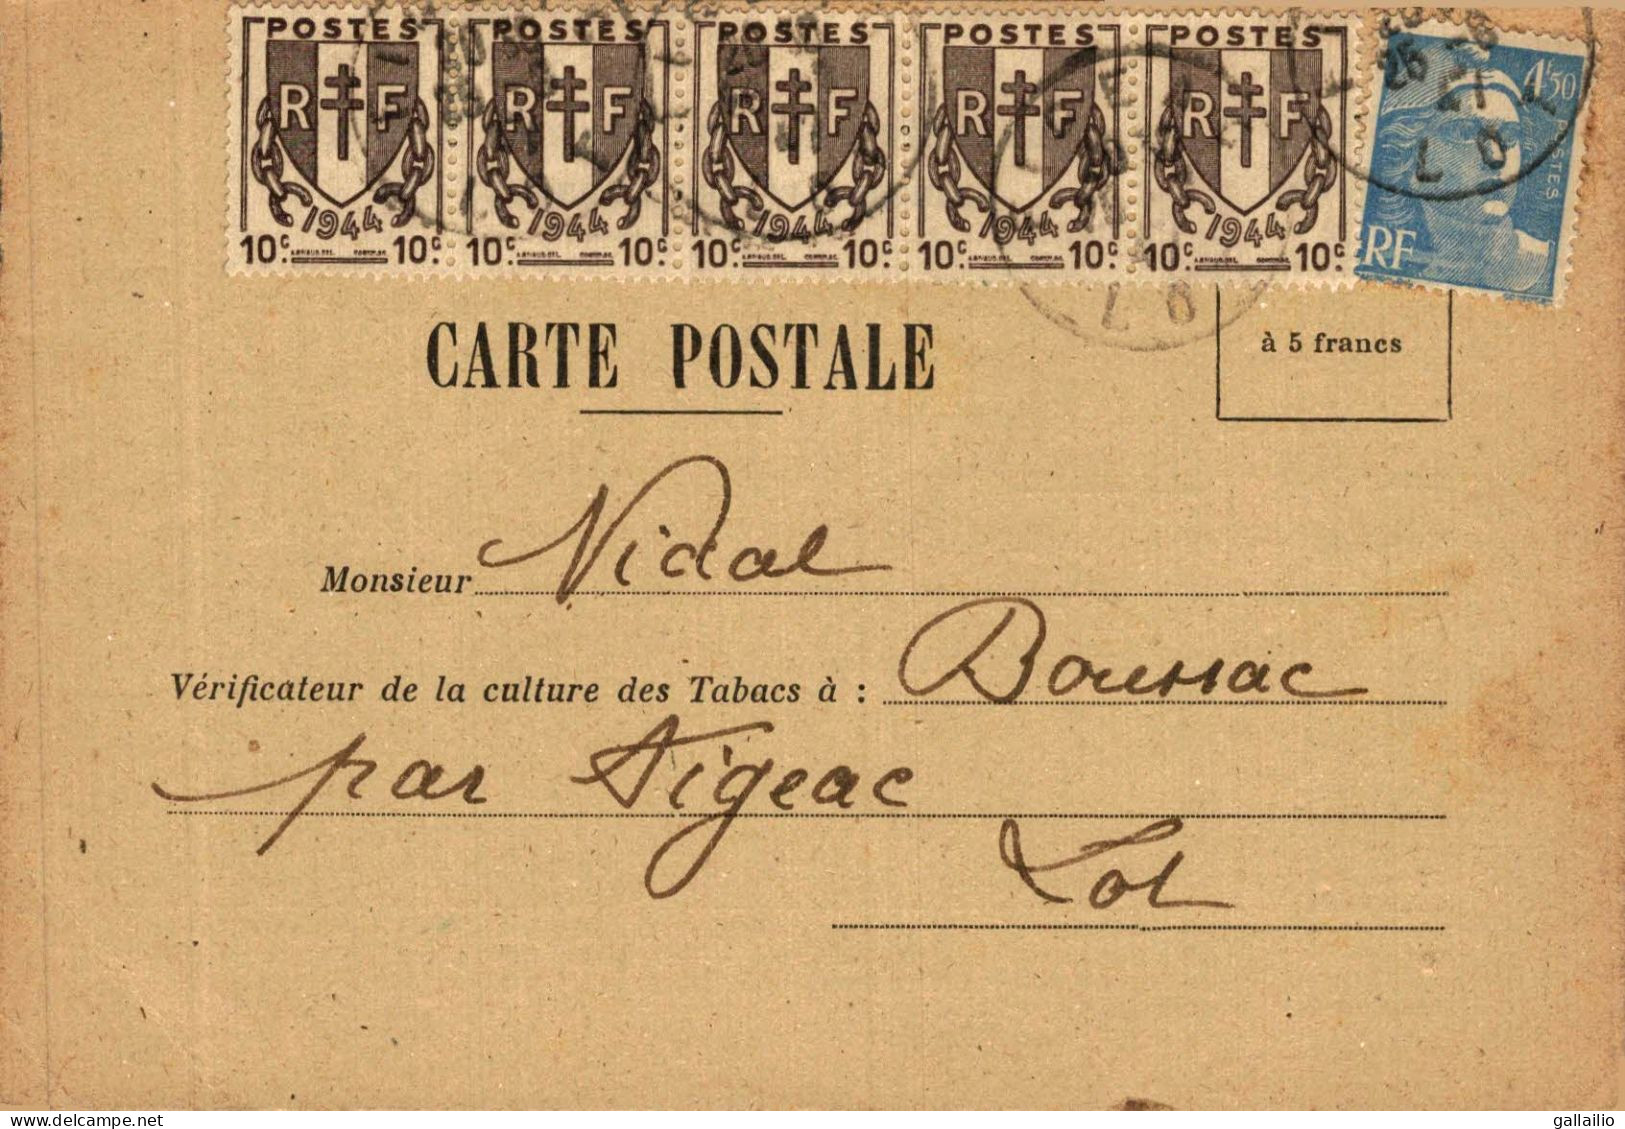 POSTES POSTES POSTES POSTES POSTES
4F50
POSTES
R F R F R F R F R F
1944 1944 1944 1944 1944
10c. 10c. 10c. 10c. 10c. 10c. 10c. 10c. 10c. 10c.
RF
LOT
CARTE POSTALE
à 5 francs
Monsieur Vidal
Vérificateur de la culture des Tabacs à : Boussac
par Figeac
Lot
delcampe.net
gallailio